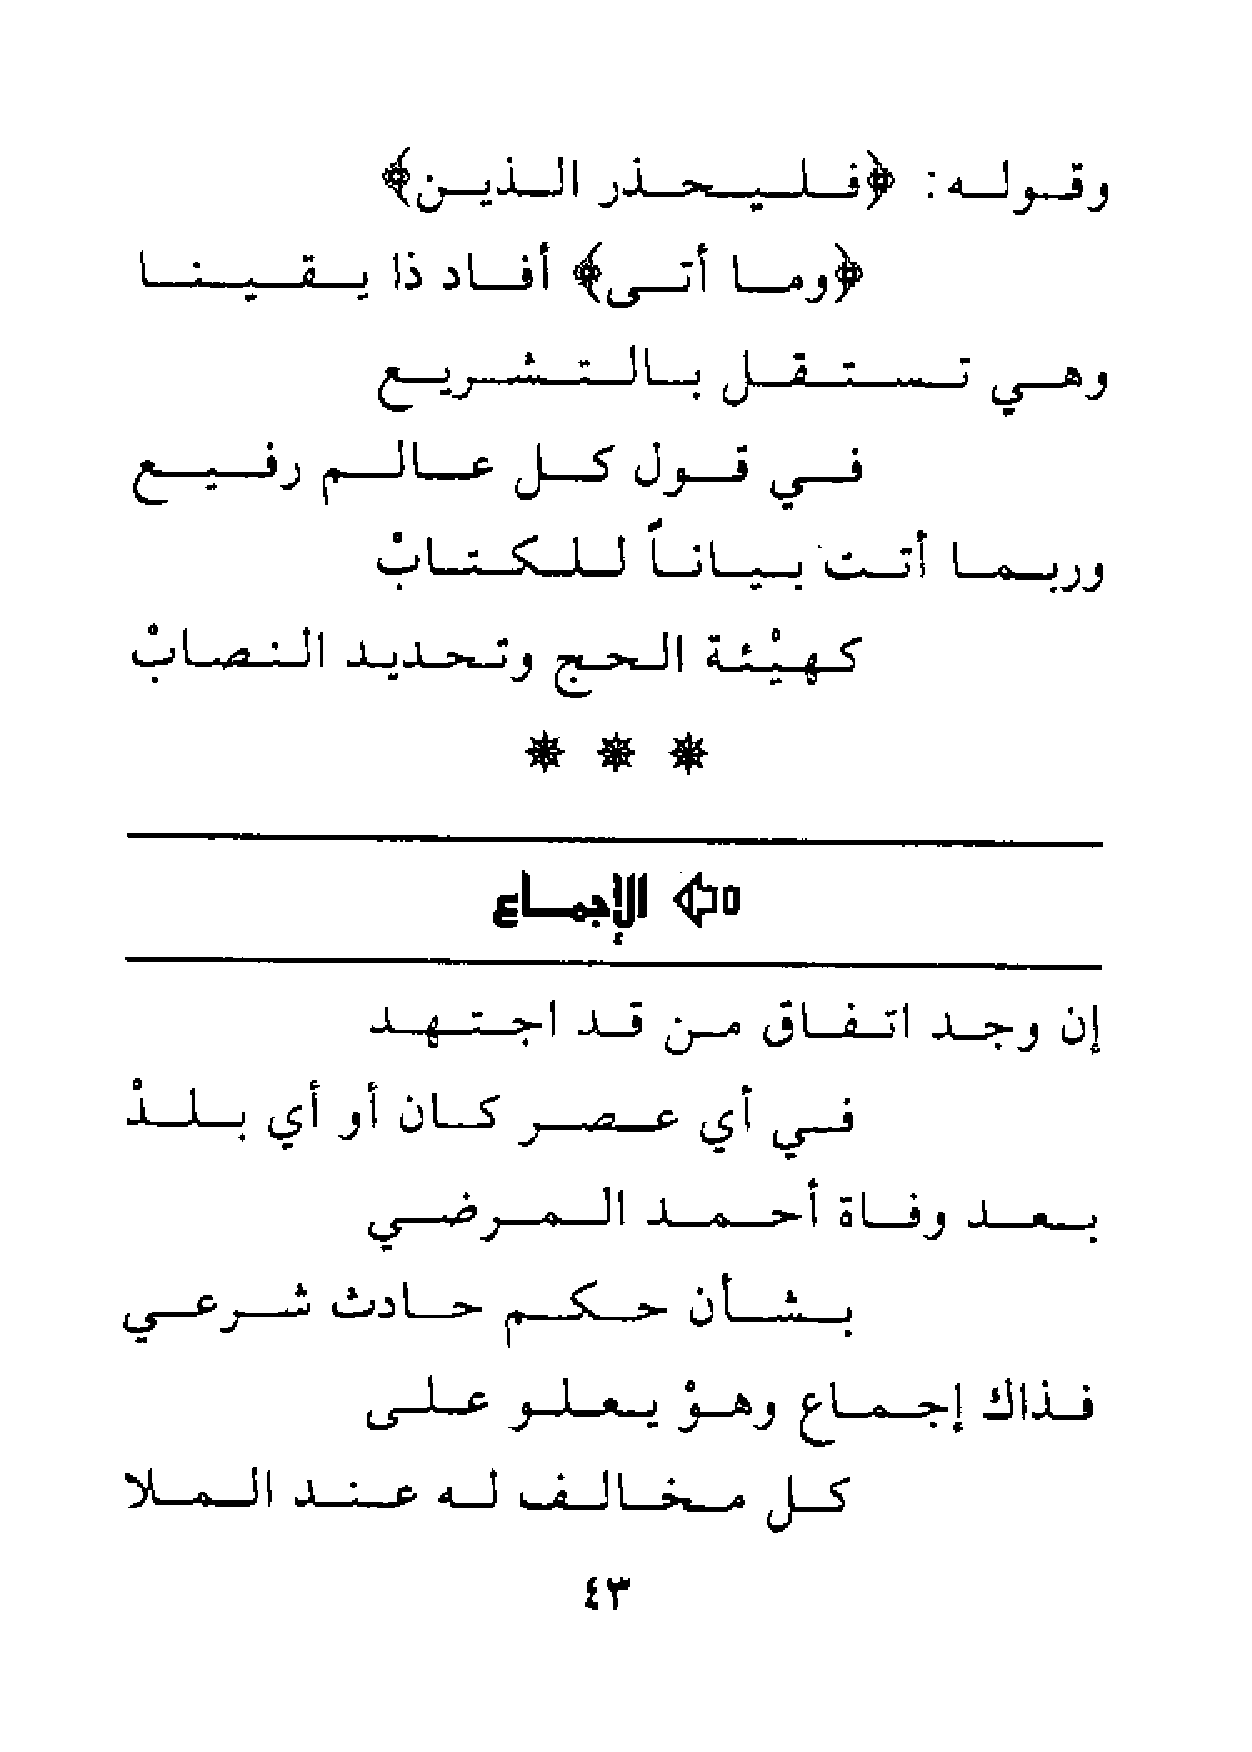 وقوله : ﴿فليحذر الذين﴾
﴿وما أتى﴾ أفاد ذا يقينا
وهي تستقل بالتشريع
في قول كل عالم رفيع
وربما أتت بياناً للكتابْ
كهيْئة الحج وتحديد النصابْ
الإجماع
إن وجد اتفاق من قد اجتهد
في أي عصر كان أو أي بلدْ
بعد وفاة أحمد المرضي
بشأن حكم حادث شرعي
فذاك إجماع وهوْ يعلو على
كل مخالف له عند الملا
٤٣